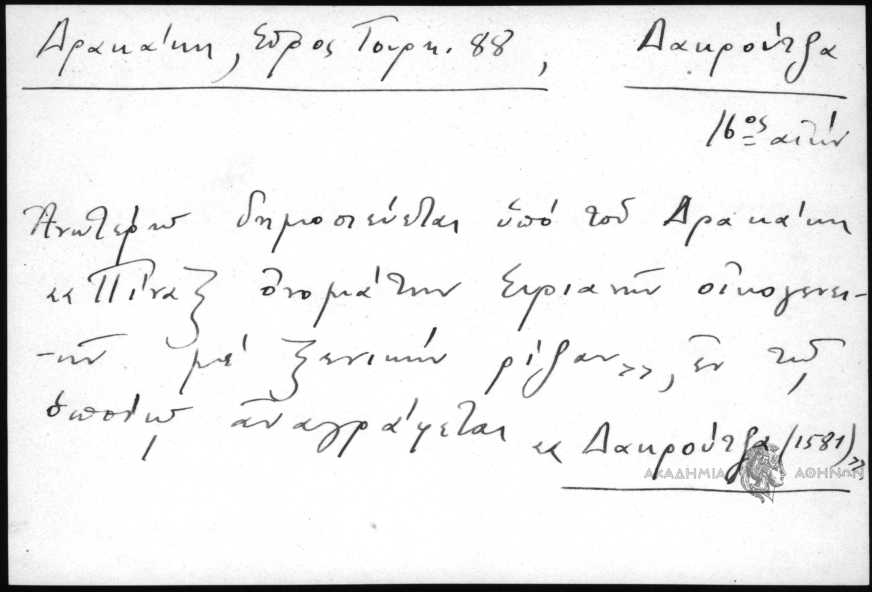 Δρακάκη, Σῦρος Τουρκ. 88, Δακρούτζα
16ος αἰών
Ἀνωτέρω δημοσιεύεται ὑπό τοῦ Δρακάκη
«Πίναξ ὀνομάτων Συριανῶν οἰκογενει-
-ῶν μέ ξενικήν ρίζαν», ἐν τῷ
ὁποίῳ ἀναγράφεται «Δακρούτζα (1581)»
ΑΚΑΔΗΜΙΑ ΑΘΗΝΩΝ